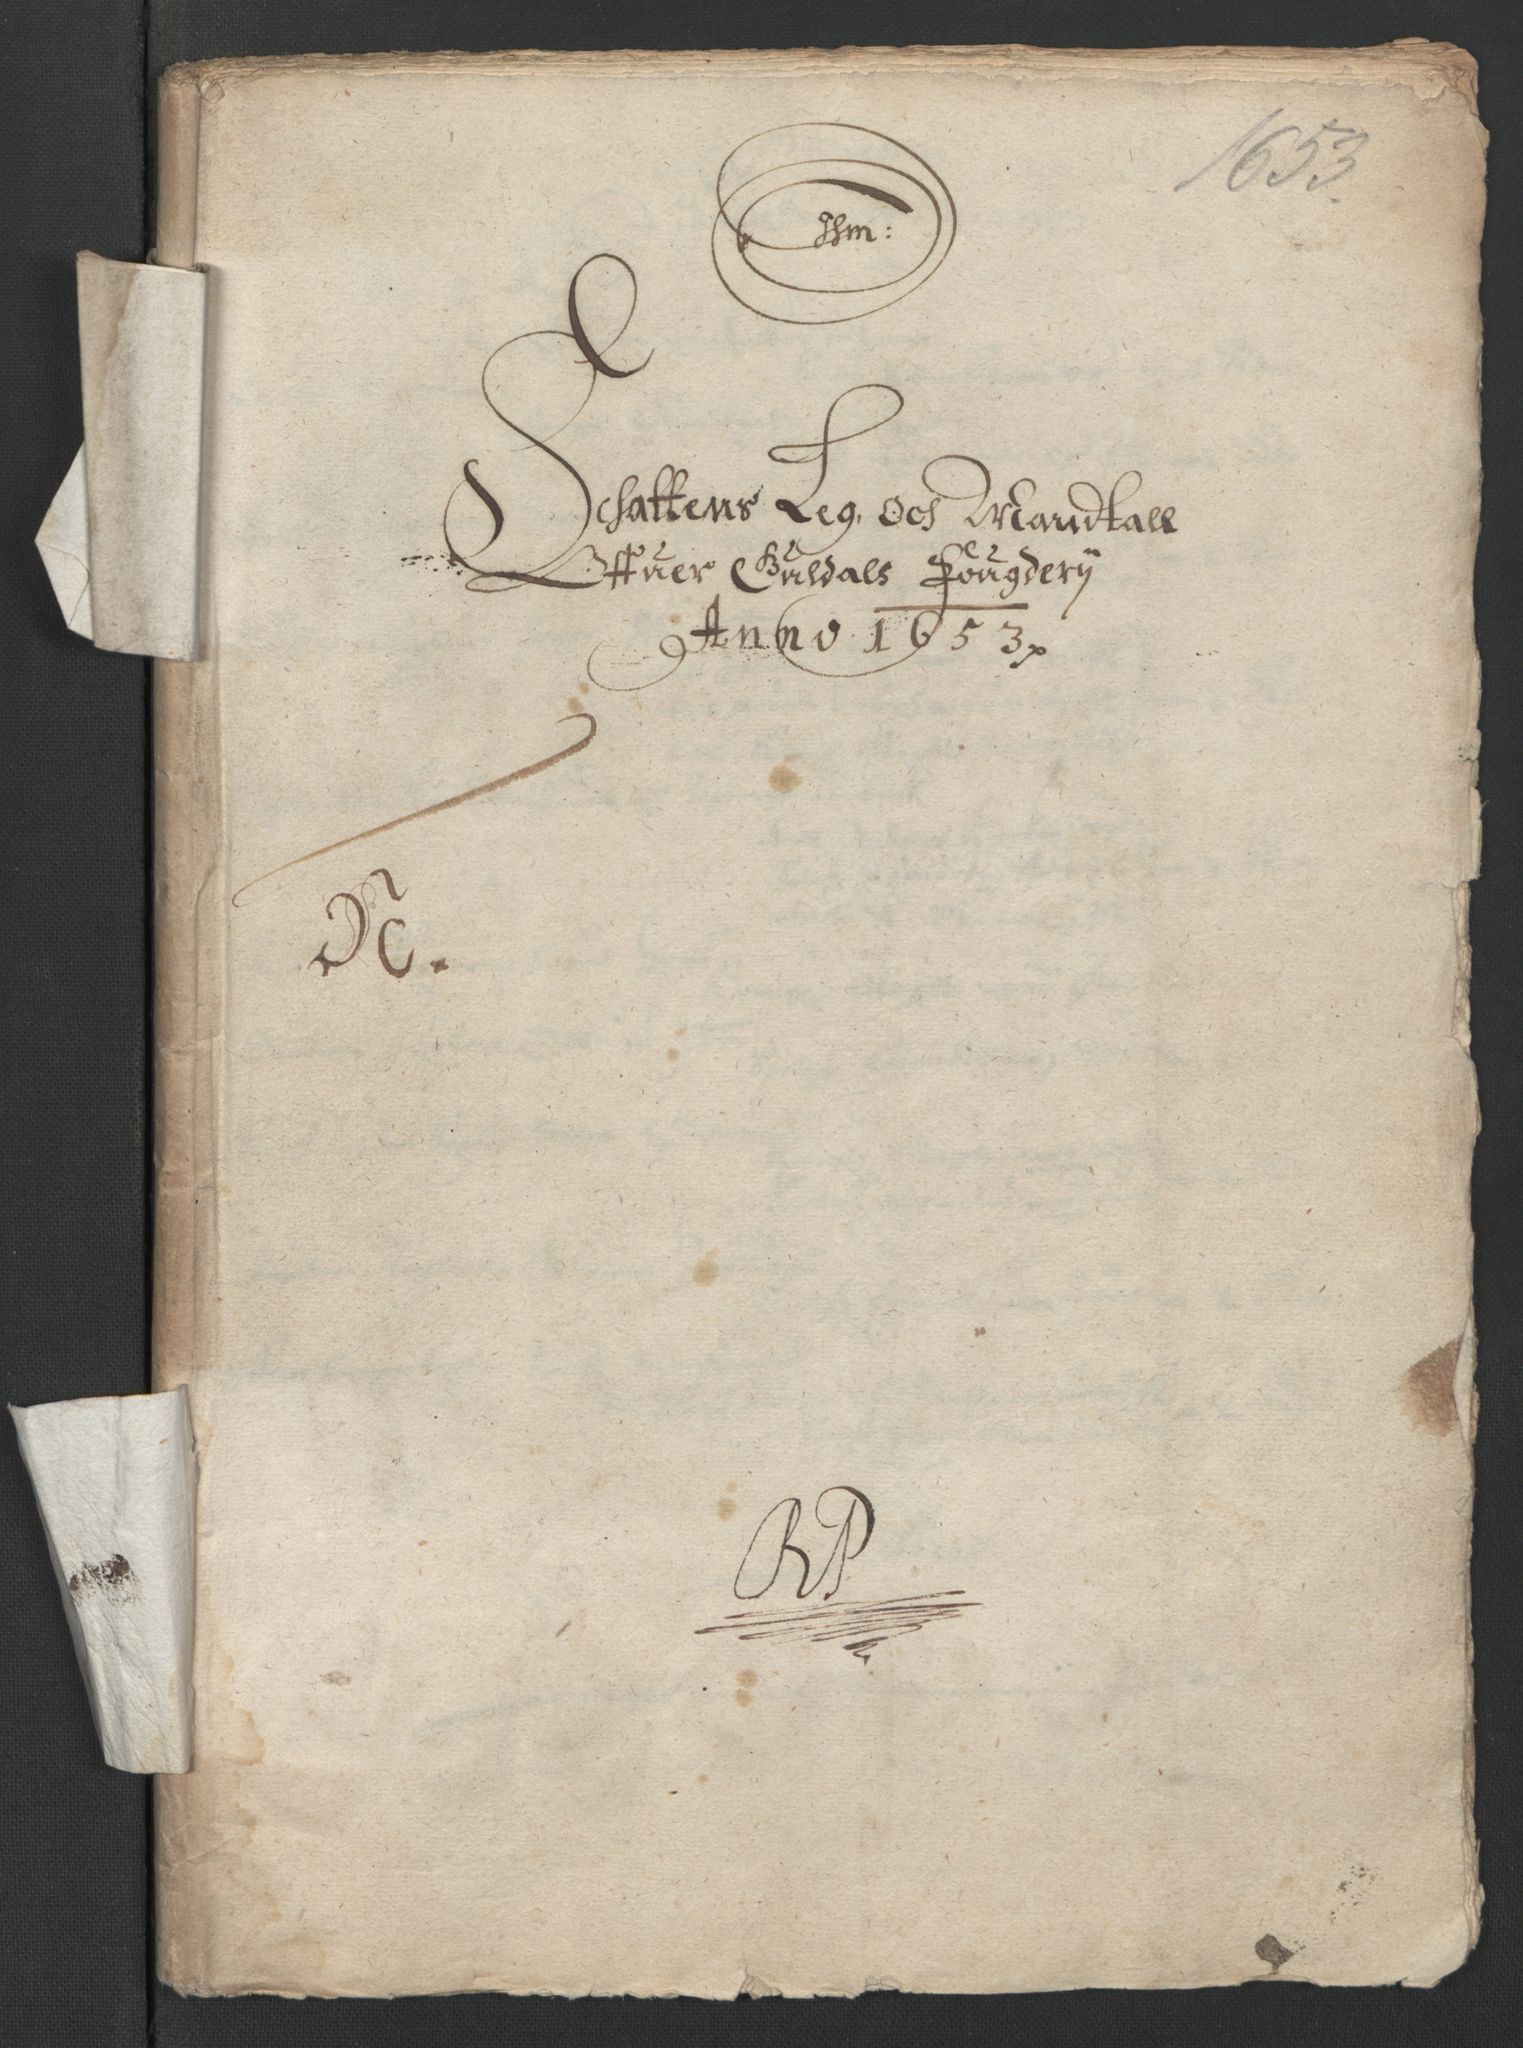 1653.
Ihm:
Schattens Leg. och Mandtall
Offuer Guldals Fougderij
Anno 1653
N.
RP